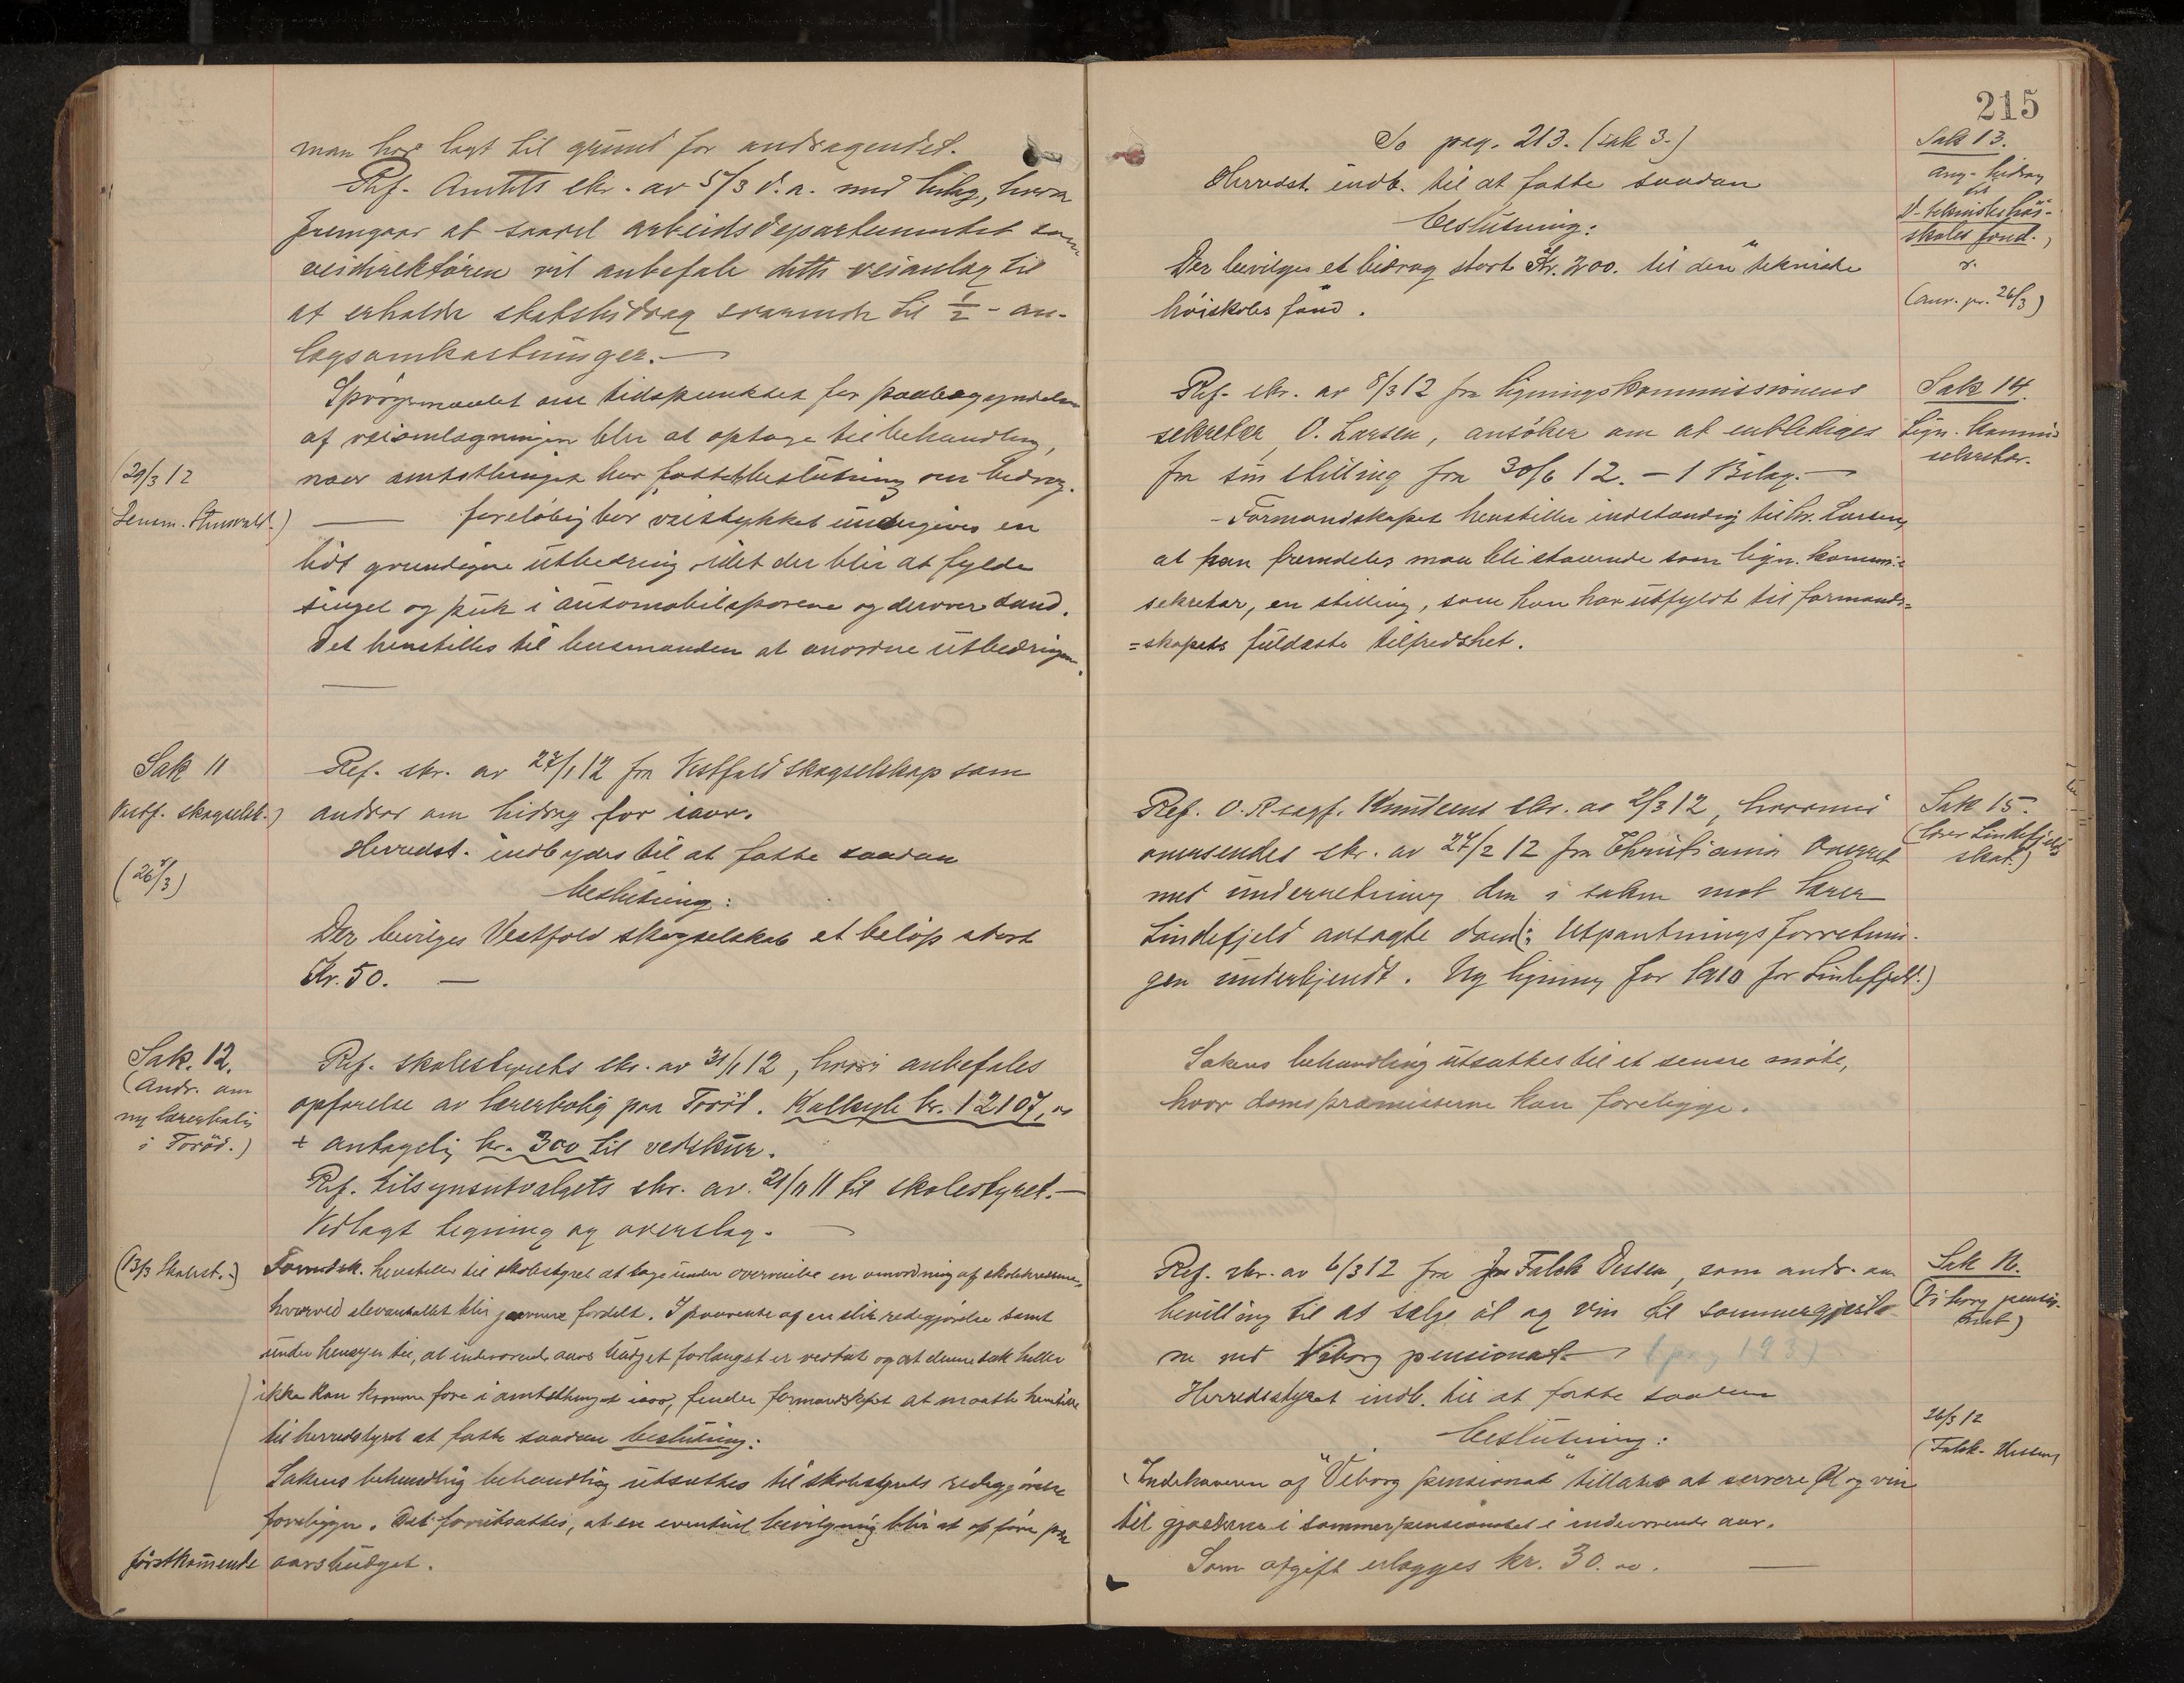 man har lagt til grund for andragendet.
Ref. Amtets skr. av 5/3 d.a. med bilag, hvorav
fremgaar at saavel arbeidsdepartementet som
veidirektören vil anbefale dette veianlæg til
at erholde statsbidrag svarende til 1/2 - an-
lægsomkostninger. —
Spörgsmaalet om tidspunktet for paabegyndelsen
af veiomlægningen blir at optage til behandling,
(29/3 12
naar amtsthinget har fattet beslutning om bidrag.
Lensm. )
— foreløbig bør veistykket undergives en
lidt grundigere utbedring, idet der blir at fylde
singel og puk i automobilsporene og derover sand.
Det henstilles til lensmanden at anordne utbedringen.
Sak 11
Vestf. skogselsk.)
(26/3)
Ref. skr. av 27/1 12 fra Vestfold skogselskap som
andrar om bidrag for iaar.
Herredst. indbydes til at fatte saadan
beslutning:
Der bevilges Vestfold skogselskab et beløp stort
Kr. 50. —
Sak. 12.
(Andr. om
ny lærerbolig
i Torød.)
Ref. skolestyrets skr. av 31/1 12, hvori anbefales
opførelse av lærerbolig paa Torød. Kalkyle kr. 12107,00
+ antagelig kr. 300 til vedskur.
Ref. tilsynsutvalgets skr. av 21/11 11 til skolestyret. —
Vedlagt tegning og overslag. —
(13/3 Skolest.)
Formdsk. henstiller til skolestyret at tage under overveielse en omordning af skolekredsene,
hvorved elevantallet blir jævnere fordelt. I paavente af en slik redegjørelse samt
under hensyn til, at indeværende aars budget forlængst er vedtat og at denne sak heller
ikke kan komme fore i amtsthinget iaar, finder formandskapet at maatte henstille
til herredstyret at fatte saadan beslutning:
Sakens behandling behandling utsættes til skolestyrets redegjørelse
foreligger. Det forutsættes, at en eventuel bevilgning blir at opføre paa
førstkommende aarsbudget.
215
To pag. 213. (sak 3.)
Herredst. indb. til at fatte saadan
beslutning:
Der bevilges et bidrag stort Kr. 200. til den tekniske
høiskoles fond.
Sak 13.
ang. bidrag
til
d. tekniske høi-
skoles fond.,
(anv. pr. 26/3)
Ref. skr. av 8/3 12 fra ligningskommissionens
sekretær, O. Larsen, ansöker om at entlediges
fra sin stilling fra 30/6 12. — 1 Bilag. —
- Formandskapet henstiller indstændig til hr. Larsen,
at han fremdeles maa bli staaende som lign. komm.=
sekretær, en stilling, som han har utfyldt til formands=
=skapets fuldeste tilfredshet.
Sak 14.
Lign. komm=
sekretær.
Ref. O. R. sagf. Knudsens skr. av 2/3 12, hvormed
oversendes skr. av 27/2 12 fra Christiania Overret
med underretning om i saken mot lærer
Lindefjeld avsagte dom (: Utpantningsforretnin-
gen underkjendt. Ny ligning for 1910 for Lindefjeld.)
Sak 15.
(lærer Lindefjelds
skat.)
Sakens behandling utsættes til et senere møte,
hvor domspræmisserne kan foreligge.
Ref. skr. av 6/3 12 fra Falck Ussen, som andr. om
bevilling til at sælge öl og vin til sommergjæste-
ne ved Viborg pensionat. — (pag 193)
Herredsstyret indb. til at fatte saadan
beslutning:
Indehaveren af "Viborg pensionat" tillates at servere øl og vin
til gjæsterne i sommerpensionatet i indeværende aar.
Som afgift erlægges kr. 30.00. —
Sak 16.
(Viborg pensio-
nat)
26/3 12